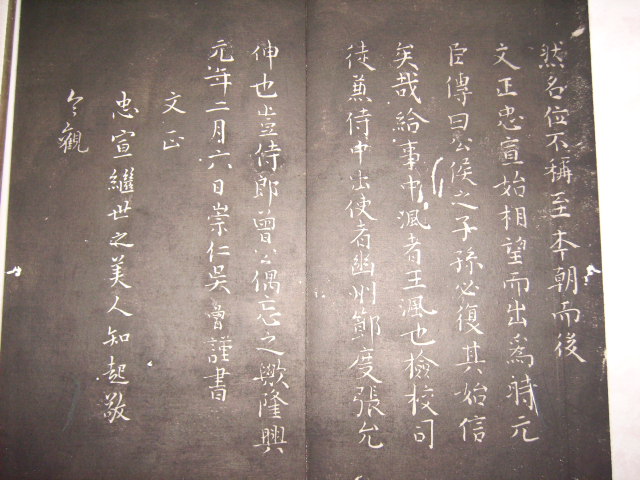 然名位不稱至本朝而後
文正忠宣始相望而出為時元
臣傳曰公侯之子孫必復其始信
矣哉給事中渢者王渢也檢校司
徒兼侍中出使者幽州鄭度張允
伸也豈侍郎曾公偶忘之歟隆興
元年二月六日崇仁吳曾謹書
文正
忠宣繼世之美人知起敬
今觀